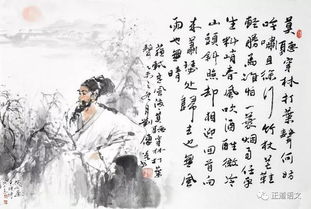 莫聽穿林打葉聲何妨
吟嘯且徐行竹杖芒鞋
輕勝馬誰怕一蓑烟雨任平
生料峭春風吹酒醒微冷
山頭斜照却相迎回首向
來蕭瑟處歸去也無風
雨也無晴
蘇軾定風波莫聽穿林打葉
聲
正道语文